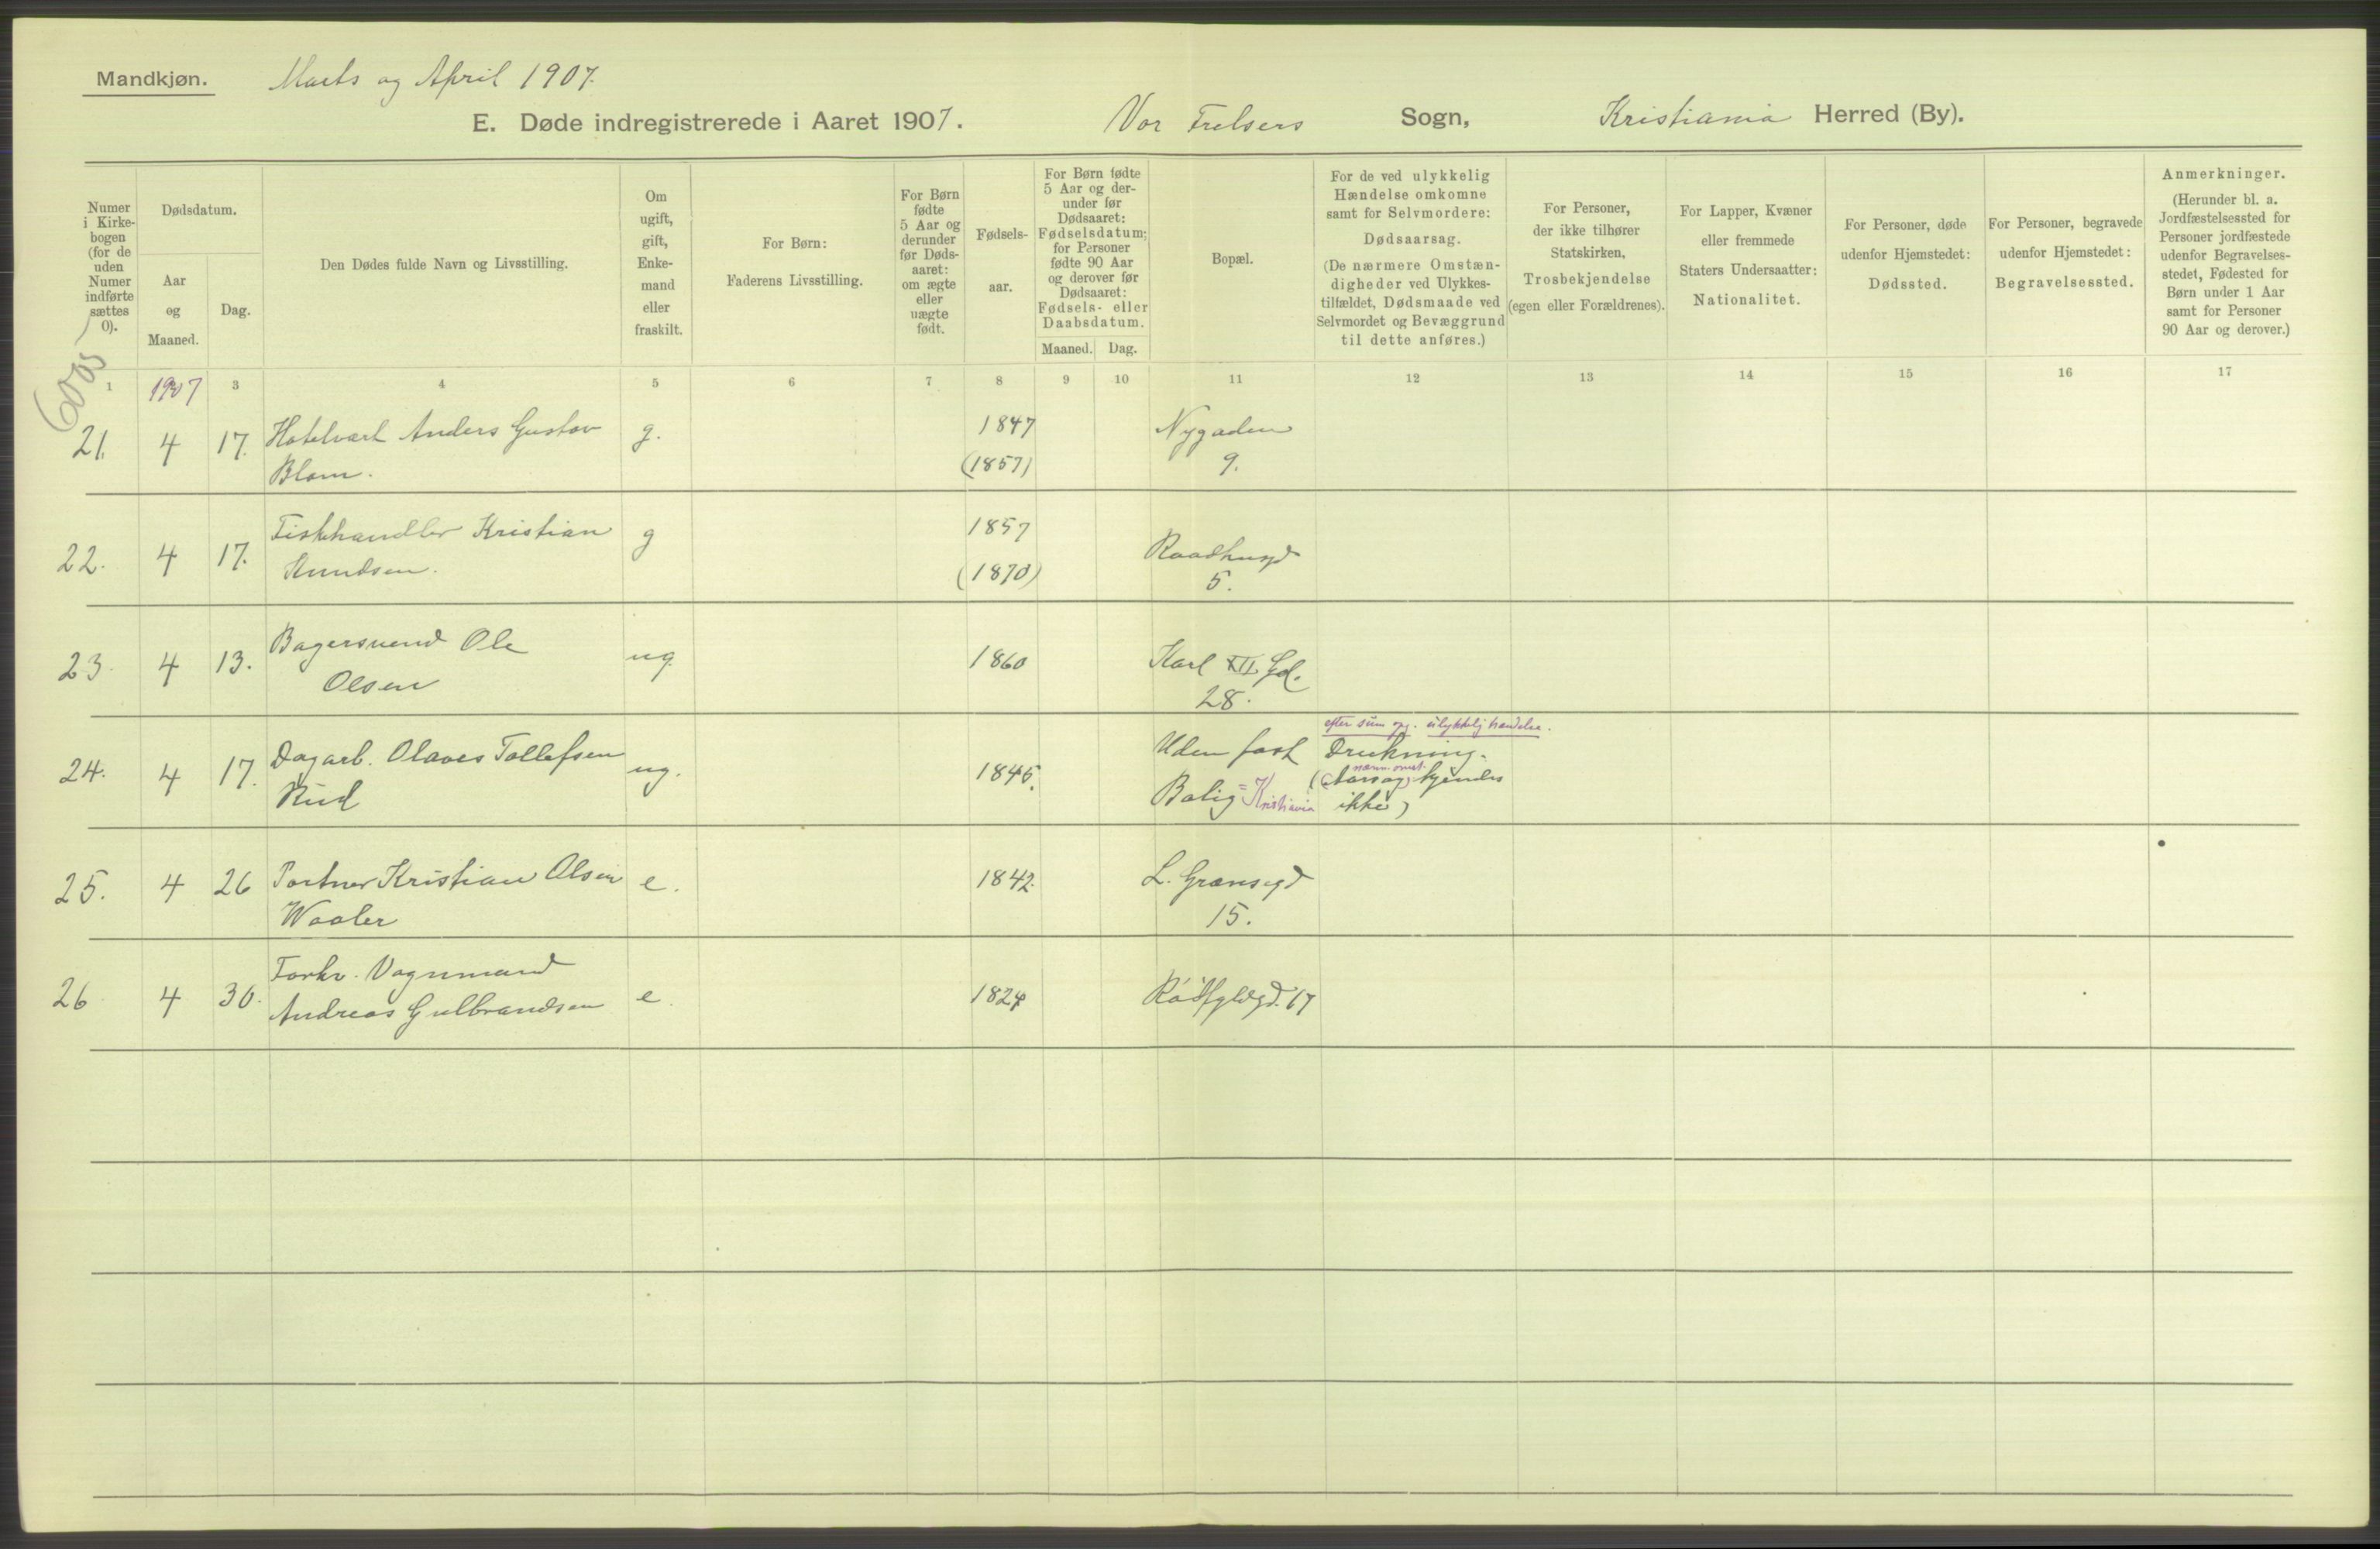 Mandkjøn. Marts og April 1907.
E. Døde indregistrerede i Aaret 1907. Vor Frelsers Sogn, Kristiania Herred (By).
Numer
i Kirke-
bogen
(for de
uden
Numer
indførte
sættes
0).
Dødsdatum.
Aar
og
Maaned.
Dag.
Den Dødes fulde Navn og Livsstilling.
Om
ugift,
gift,
Enke-
mand
eller
fraskilt.
For Børn:
Faderens Livsstilling.
For Børn
fødte
5 Aar og
derunder
før Døds-
aaret:
om ægte
eller
uægte
født.
Fødsels-
aar.
For Børn fødte
5 Aar og der-
under før
Dødsaaret:
Fødselsdatum;
for Personer
fødte 90 Aar
og derover før
Dødsaaret:
Fødsels- eller
Daabsdatum.
Maaned. Dag.
Bopæl.
For de ved ulykkelig
Hændelse omkomne
samt for Selvmordere:
Dødsaarsag.
(De nærmere Omstæn-
digheder ved Ulykkes-
tilfældet, Dødsmaade ved
Selvmordet og Bevæggrund
til dette anføres.)
For Personer,
der ikke tilhører
Statskirken,
Trosbekjendelse
(egen eller Forældrenes).
For Lapper, Kvæner
eller fremmede
Staters Undersaatter:
Nationalitet.
For Personer, døde
udenfor Hjemstedet:
Dødssted.
For Personer, begravede
udenfor Hjemstedet:
Begravelsessted.
Anmerkninger.
(Herunder bl. a.
Jordfæstelsessted for
Personer jordfæstede
udenfor Begravelses-
stedet, Fødested for
Børn under 1 Aar
samt for Personer
90 Aar og derover.)
1 1907 3 4 5 6 7 8 9 10 11 12 13 14 15 16 17
21. 4 17. Hotelvært Anders Gustav g. 1847 Nygaden
Blom. (1857) 9.
22. 4 17. Fiskhandler Kristian g 1857 Raadhusgd
Knudsen. (1870) 5.
23. 4 13. Bagersvend Ole ug. 1860 Karl XII Gd.
Olsen 28.
efter sum opg. ulykkelig hændelse.
24. 4 17. Dagarb. Olaves Tollefsen ug. 1845. Uden fast Drukning.
nærm. omst.
(Aarsag kjendes
Rud Bolig = Kristiania ikke)
25. 4 26 Portner Kristian Olsen e. 1842. L. Grænsegd
Waaler 15.
26 4 30. Forhv. Vognmand
Andreas Gulbrandsen e. 1824 Rødfyldgd. 17